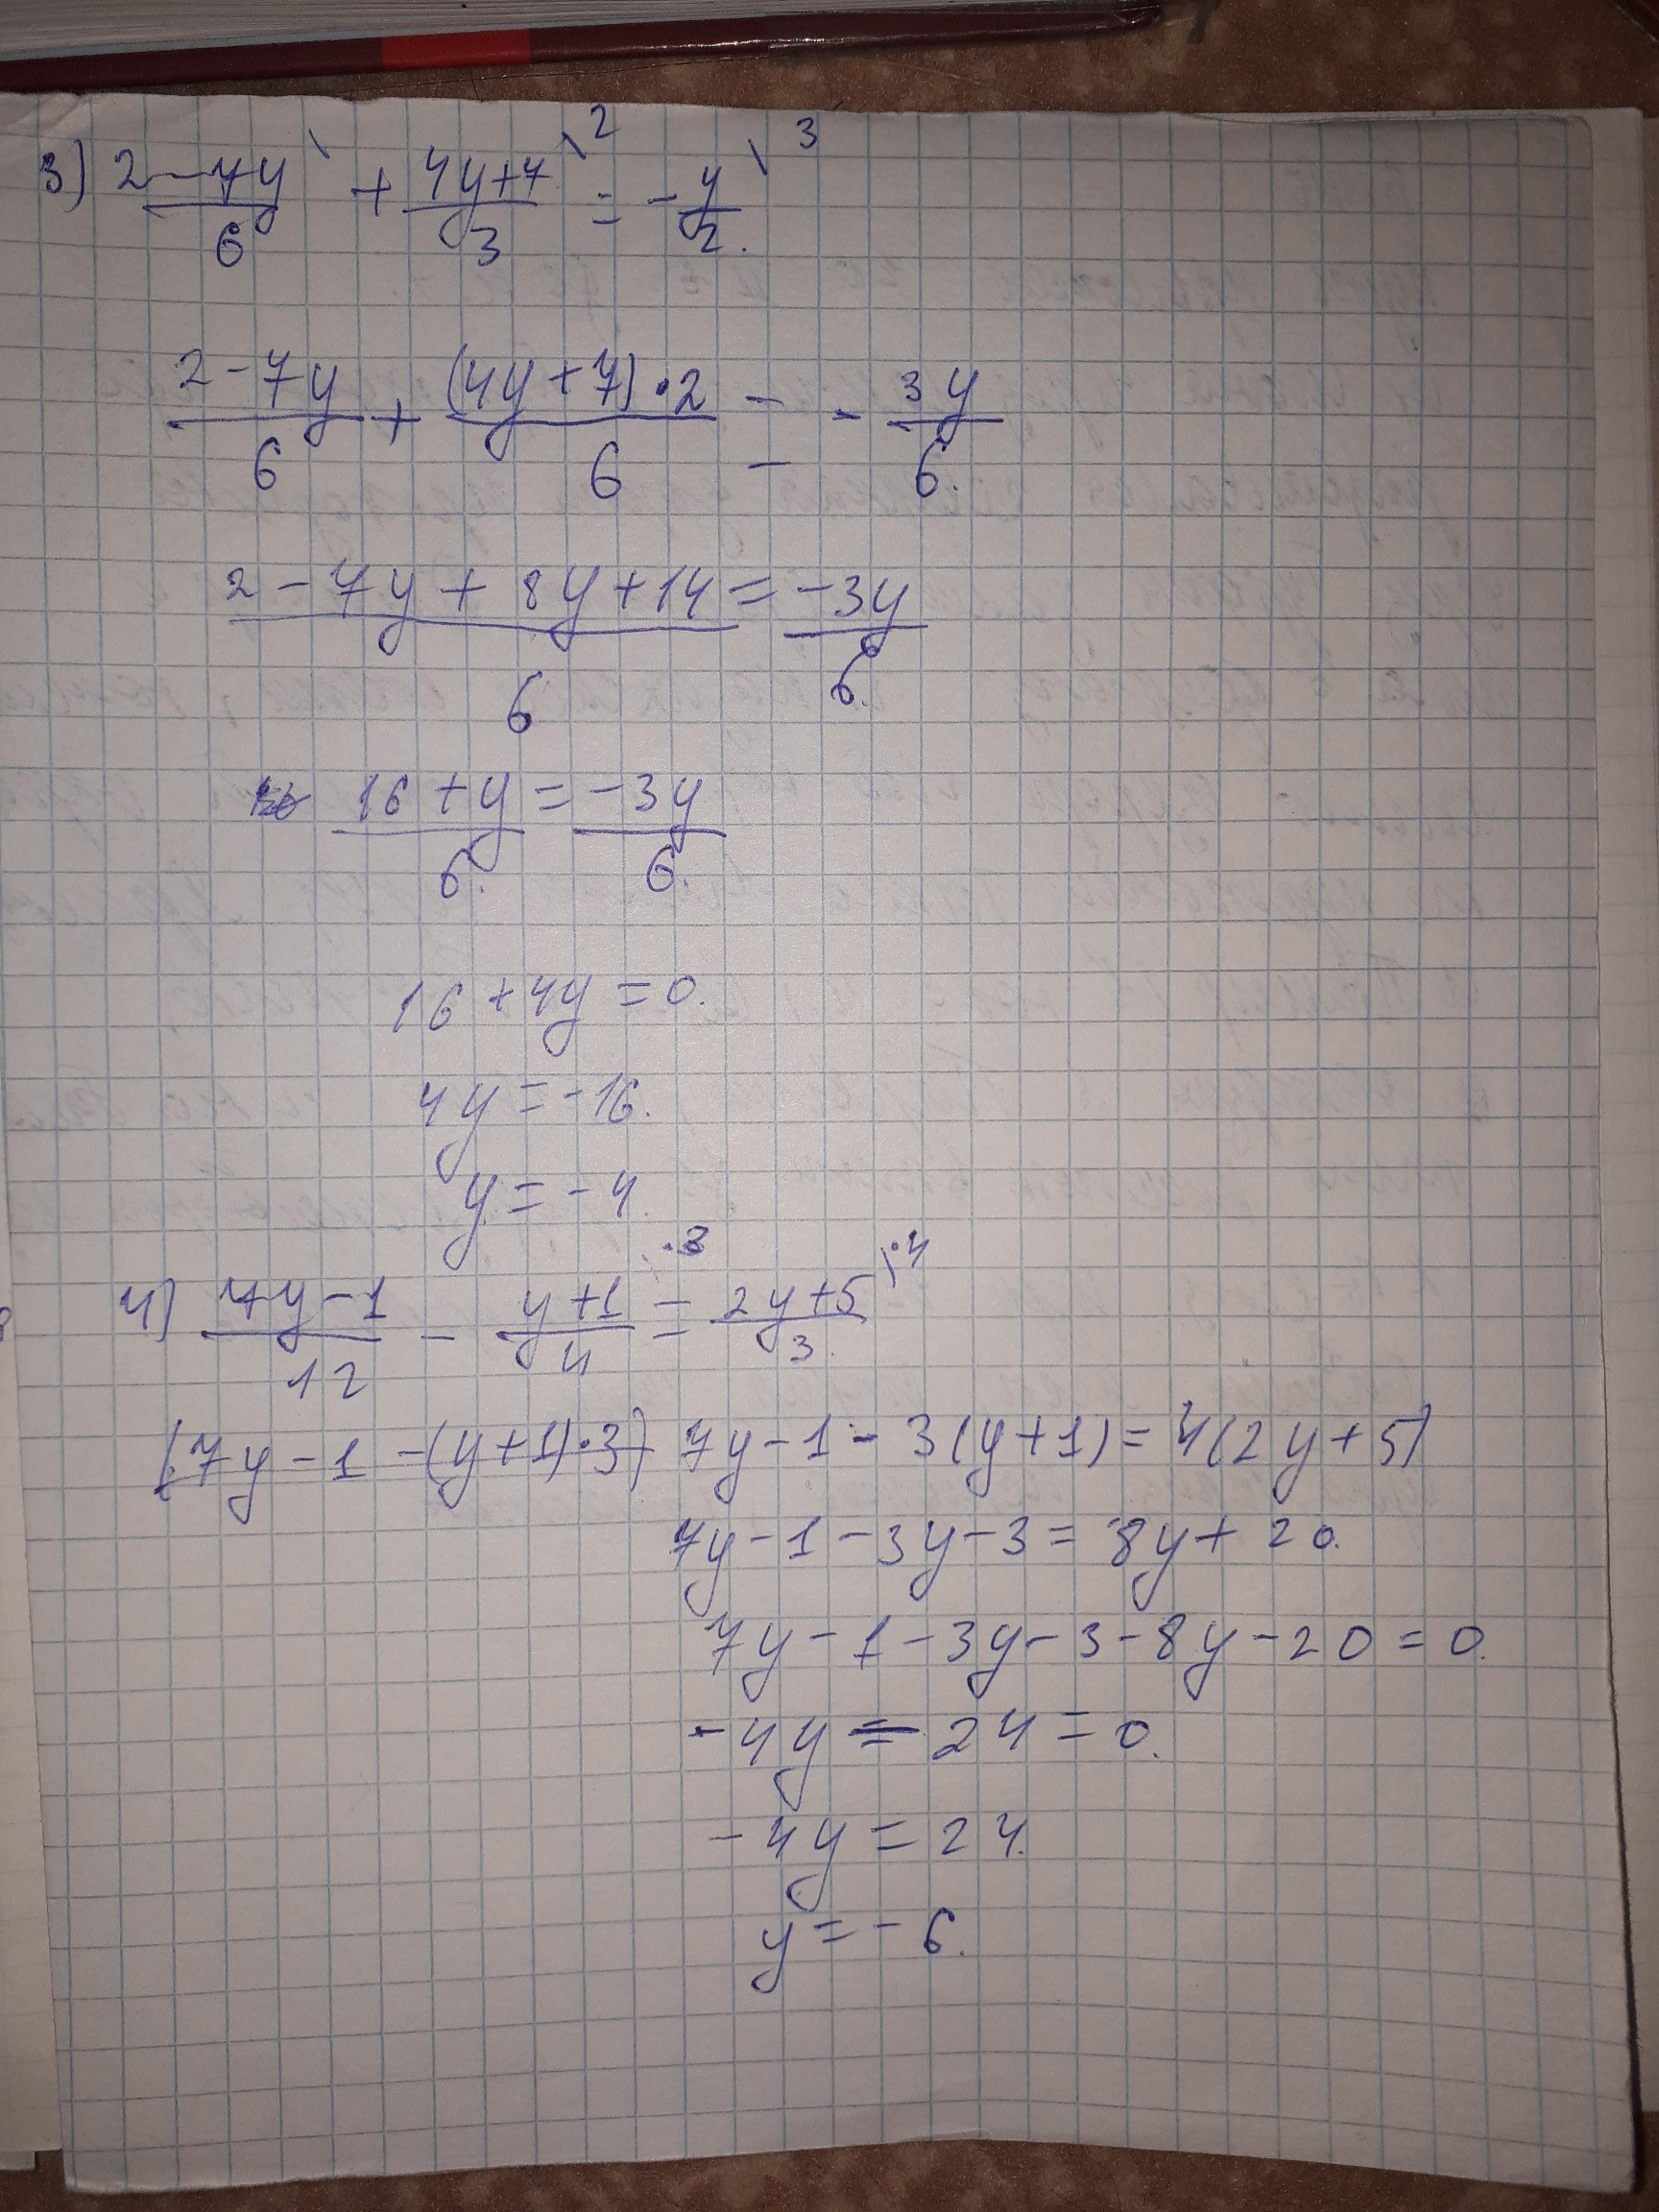 3) 2-7y/6 \ + 4y+7/3 \2 = -y/2. \3
2-7y/6 + (4y+7)·2/6 = -3y/6.
2-7y+8y+14/6 = -3y/6.
16+y/6. = -3y/6.
16+4y=0.
4y=-16.
y=-4.
4) 7y-1/12 - y+1/4 ·3 = 2y+5/3. \·4
(7y-1-(y+1)·3) 7y-1-3(y+1)=4(2y+5)
7y-1-3y-3=8y+20.
7y-1-3y-3-8y-20=0.
-4y-24=0.
-4y=24.
y=-6.